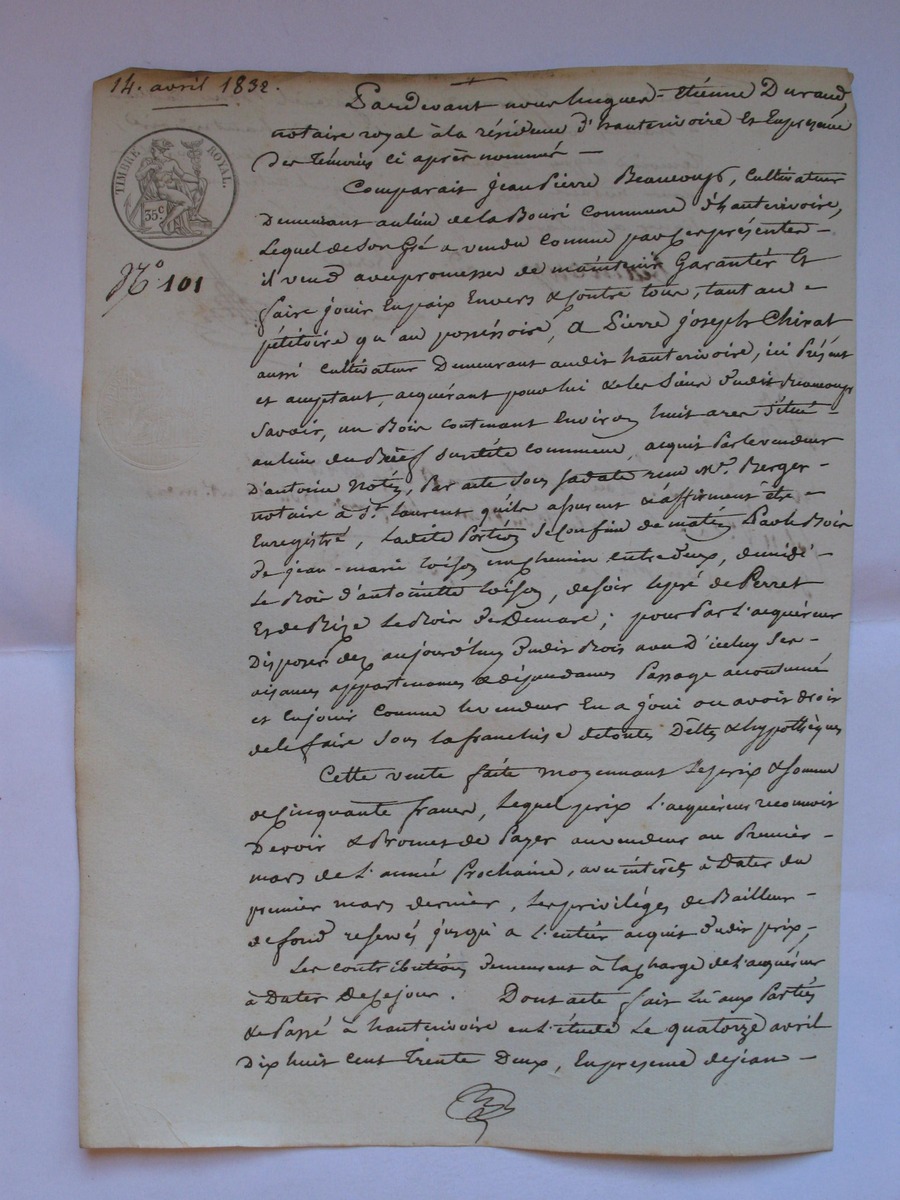 14. avril 1832.
TIMBRE ROYAL.
35c
N° 101
Pardevant nous hugues-Etiénne Durand,
notaire royal à la résidence d'hauterivoire Et En présence
des témoins ci après nommés —
Comparait jean Pierre Beaucoup, Cultivateur
Demeurant au lieu de la Bouré Commune d'hauterivoire,
Lequel de son Gré a vendu Comme par ses présentes —
il vend avec promesse de maintenir Garantir Et
faire jouir En paix Envers & Contre tous, tant au —
pétitoire qu'au possessoire, a Pierre joseph Chirat
aussi Cultivateur Demeurant audit hauterivoire, ici Présent
et acceptant, acquérant pour lui & les Siens dudit Beaucoup
Savoir, un Bois Contenant Environ huit ares situé —
au lieu du susdite commune, acquis Par le vendeur
D'antoine Notéz, Par acte sous sa date reçu Mr. Berger —
notaire à St. Laurent qu'ils assurent & affirment être —
Enregistré, Ladite Portion se Confine de matin Par le Bois
de jean-marie Loison un chemin entredeux, de midi —
Le Bois d'antoinette Loison, de soir le pré de Perret
Et de Bize le Bois de Demare; pour Par L'acquéreur
Disposer dez aujourd'huy dudit Bois avec D'iceluy Ser-
visances appartenances & dépendances Passage accoutumé
et En jouir Comme le vendeur En a joui ou avoit droit
de le faire Sous la franchise de toutes Dettes & hypothèques
Cette vente faite moyennant Le prix & somme
de Cinquante francs, Lequel prix L'acquéreur reconnoit
Devoir & Promet de Payer au vendeur au Premier —
mars de L'année Prochaine, avec intérêts à Dater du
premier mars dernier, Les privilèges de Bailleur —
de fond reservés jusqu'à L'entier acquit dudit prix,
Les Contributions Demeurent à la charge de L'acquéreur
à Dater De ce jour. Dont acte fait Lu aux Parties
& Passé à hauterivoire en L'étude Le quatorze avril
Dix huit Cent Trente Deux, En présence de jean —